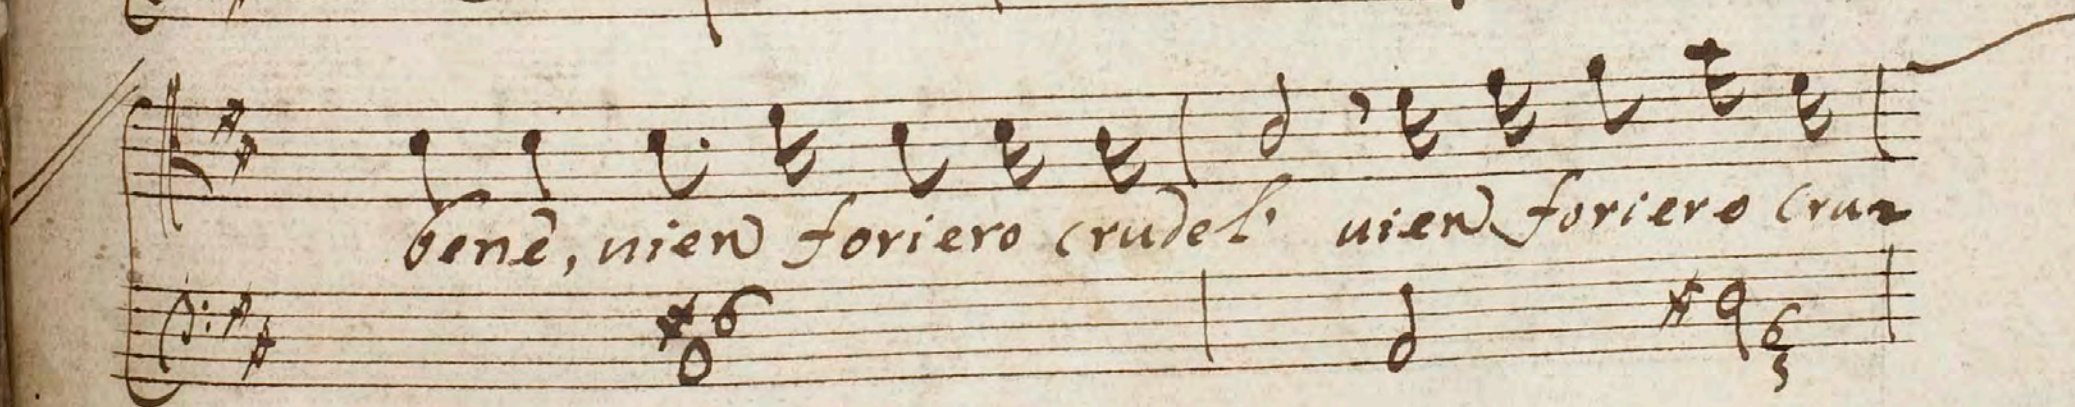 bene, uien foriero crudel' uien foriero cru=
#6
6
5